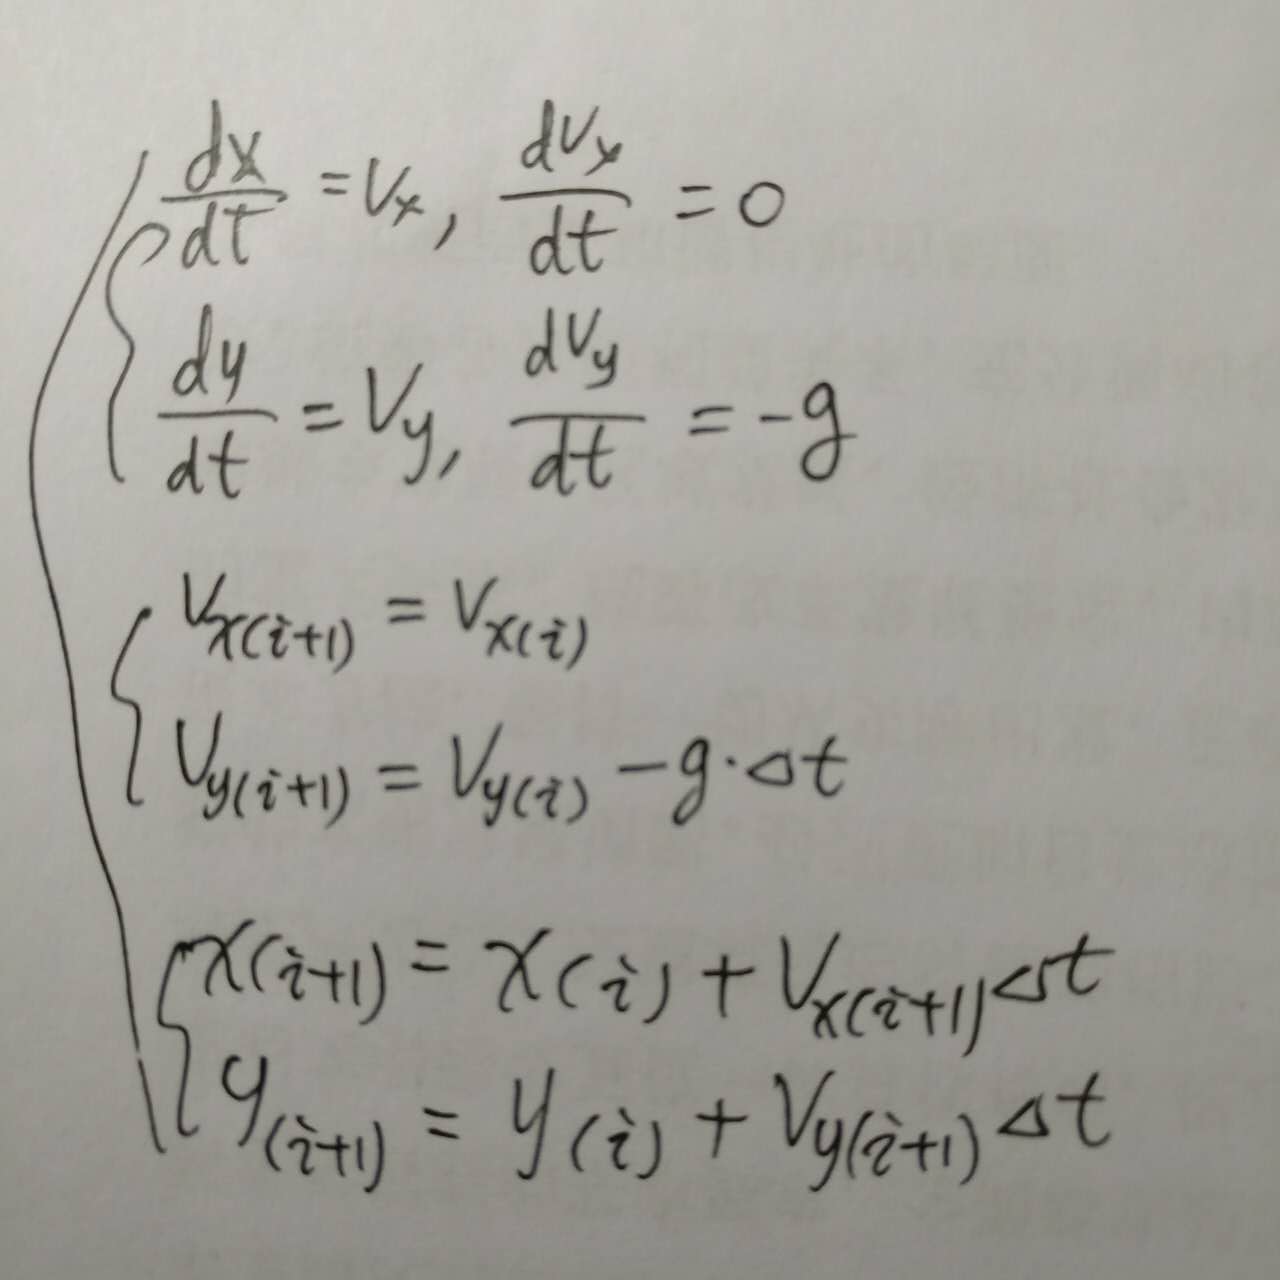 dx/dt = Vx, dVx/dt = 0
dy/dt = Vy, dVy/dt = -g
Vx(i+1) = Vx(i)
Vy(i+1) = Vy(i) - g·Δt
x(i+1) = x(i) + Vx(i+1)Δt
y(i+1) = y(i) + Vy(i+1)Δt